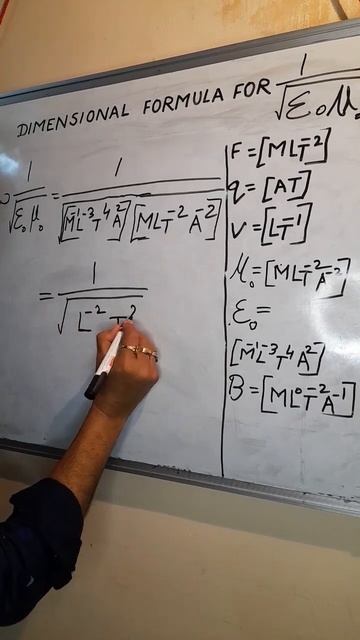 DIMENSIONAL FORMULA FOR 1/√ε₀μ₀
1/√ε₀μ₀ = 1/√[M⁻¹L⁻³T⁴A²][MLT⁻²A⁻²]
= 1/√L⁻²T²
F = [MLT⁻²]
q = [AT]
V = [LT⁻¹]
μ₀ = [MLT⁻²A⁻²]
ε₀ =
[M⁻¹L⁻³T⁴A²]
B = [ML⁰T⁻²A⁻¹]